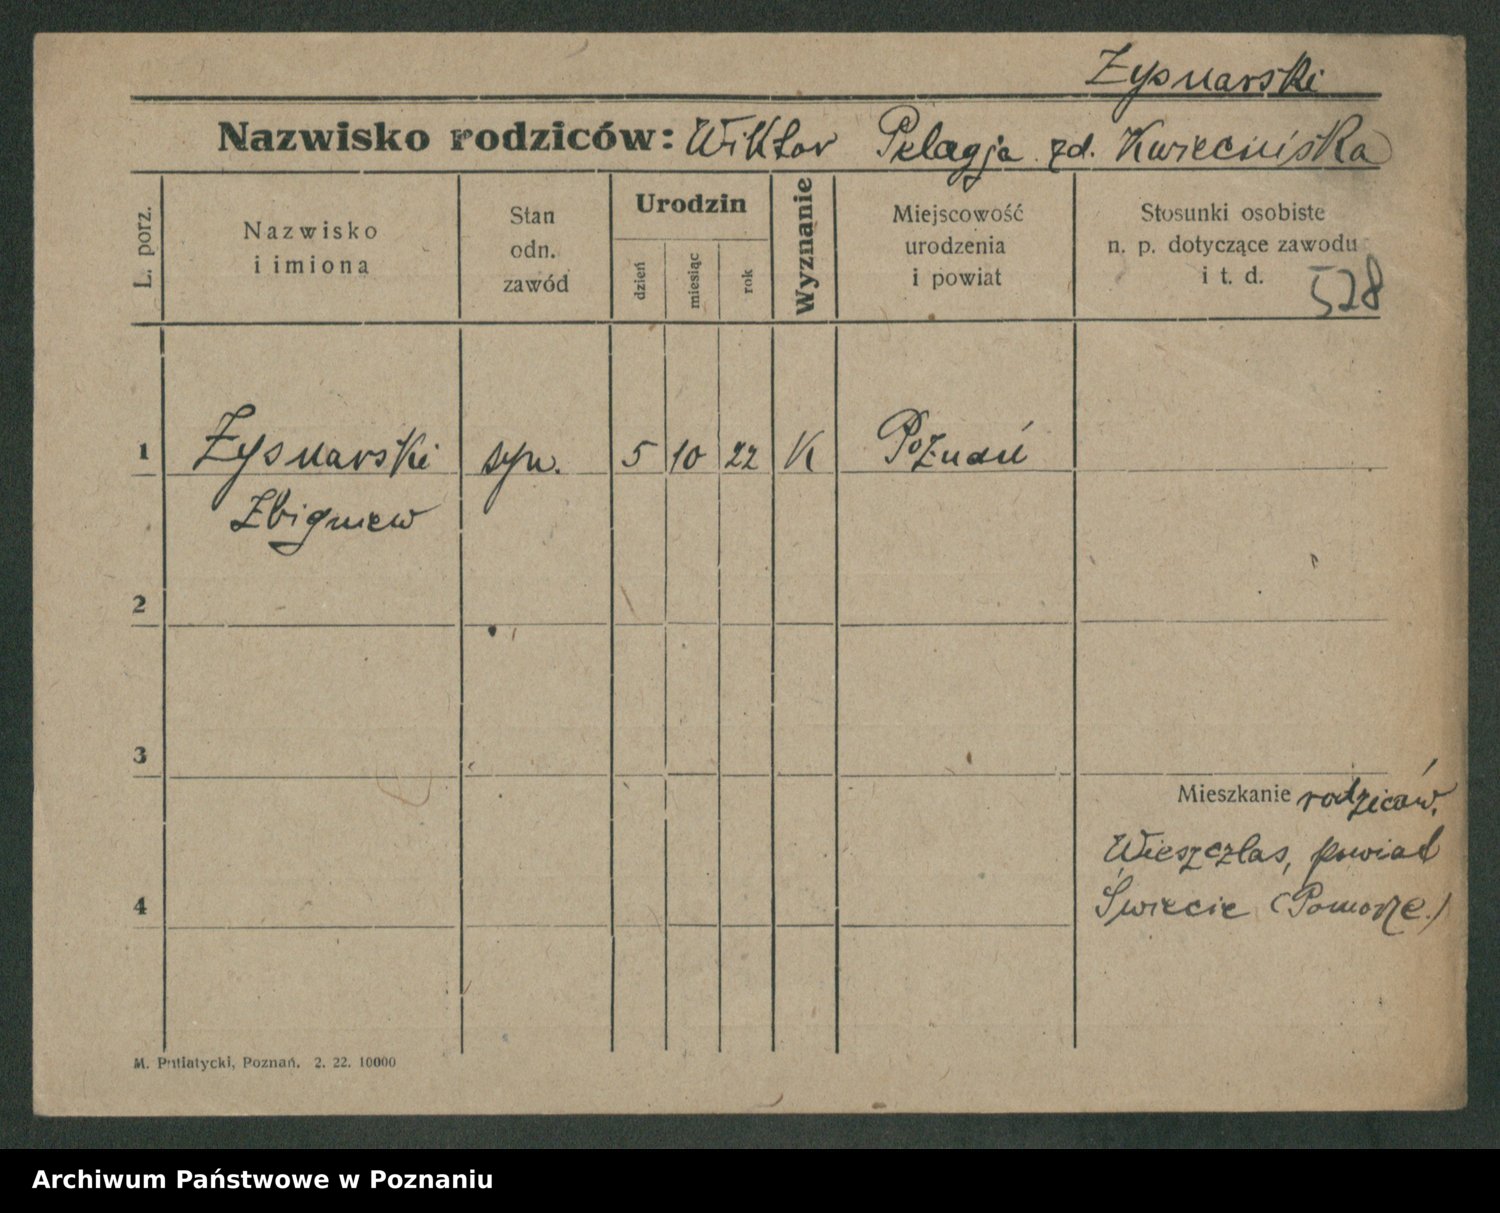 Zysnarski
Nazwisko rodziców: Wiktor Pelagja zd. Kwiecińska
L. porz.
Nazwisko
i imiona
Stan
odn.
zawód
Urodzin
dzień
miesiąc
rok
Wyznanie
Miejscowość
urodzenia
i powiat
Stosunki osobiste
n. p. dotyczące zawodu
i t. d. 528
1 Zysnarski syn. 5 10 22 K Poznań
Zbigniew
2
3
Mieszkanie rodziców.
Wieszczlas, powiat
4 Świecie (Pomorze.)
M. Putiatycki, Poznań. 2. 22. 10000
Archiwum Państwowe w Poznaniu